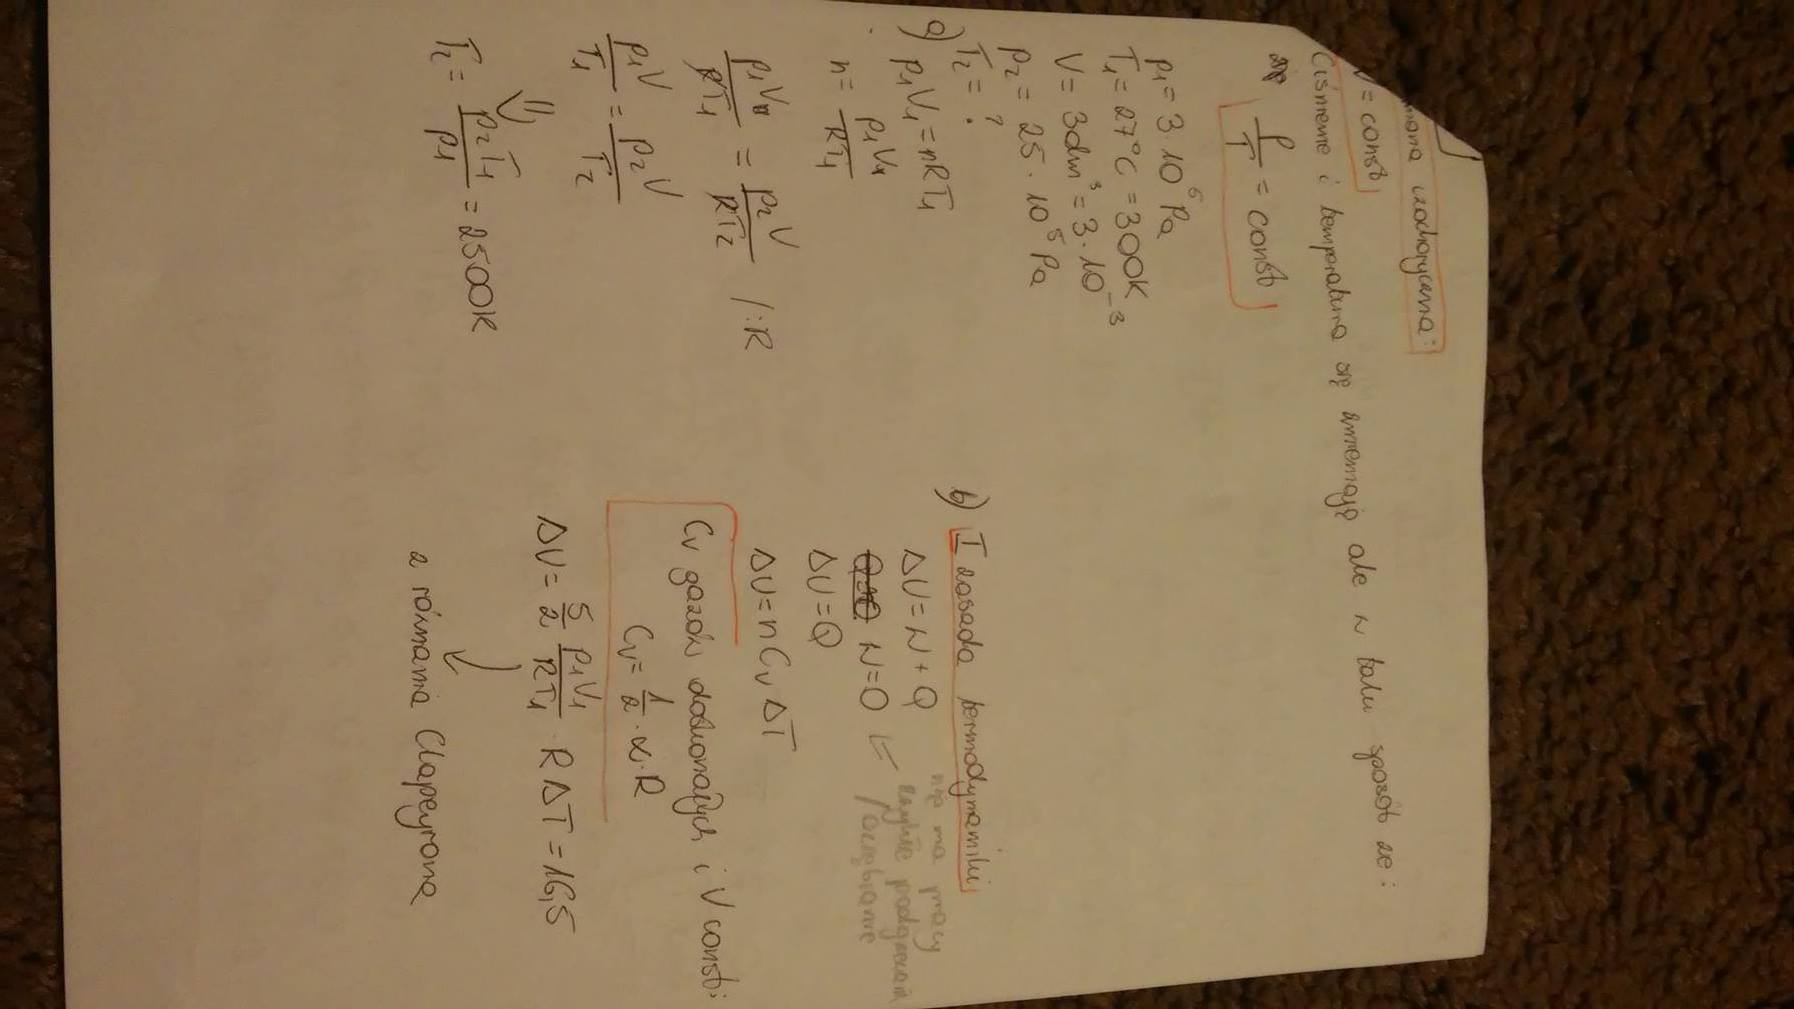 mana izochoryczna:
V = const
Ciśnienie i temperatura się zmieniają ale w taki sposób że:
P/T = const
p₁ = 3·10⁵ Pa
T₁ = 27°C = 300K
V = 3dm³ = 3·10⁻³
p₂ = 25·10⁵ Pa
T₂ = ?
a)
p₁V₁ = nRT₁
n = p₁V₁/RT₁
p₁V/RT₁ = p₂V/RT₂ /:R
p₁V/T₁ = p₂V/T₂
⇓
T₂ = p₂T₁/p₁ = 2500K
b) I zasada termodynamiki
ΔU = W + Q
W = 0 ⇐ nie ma pracy
zwykłe podgrzewanie
/oziębianie
ΔU = Q
ΔU = nCᵥΔT
Cᵥ gazów doskonałych i V const:
Cᵥ = 1/2·α·R
ΔU = 5/2 p₁V₁/RT₁ RΔT = 16,5
↓
z równania Clapeyrona